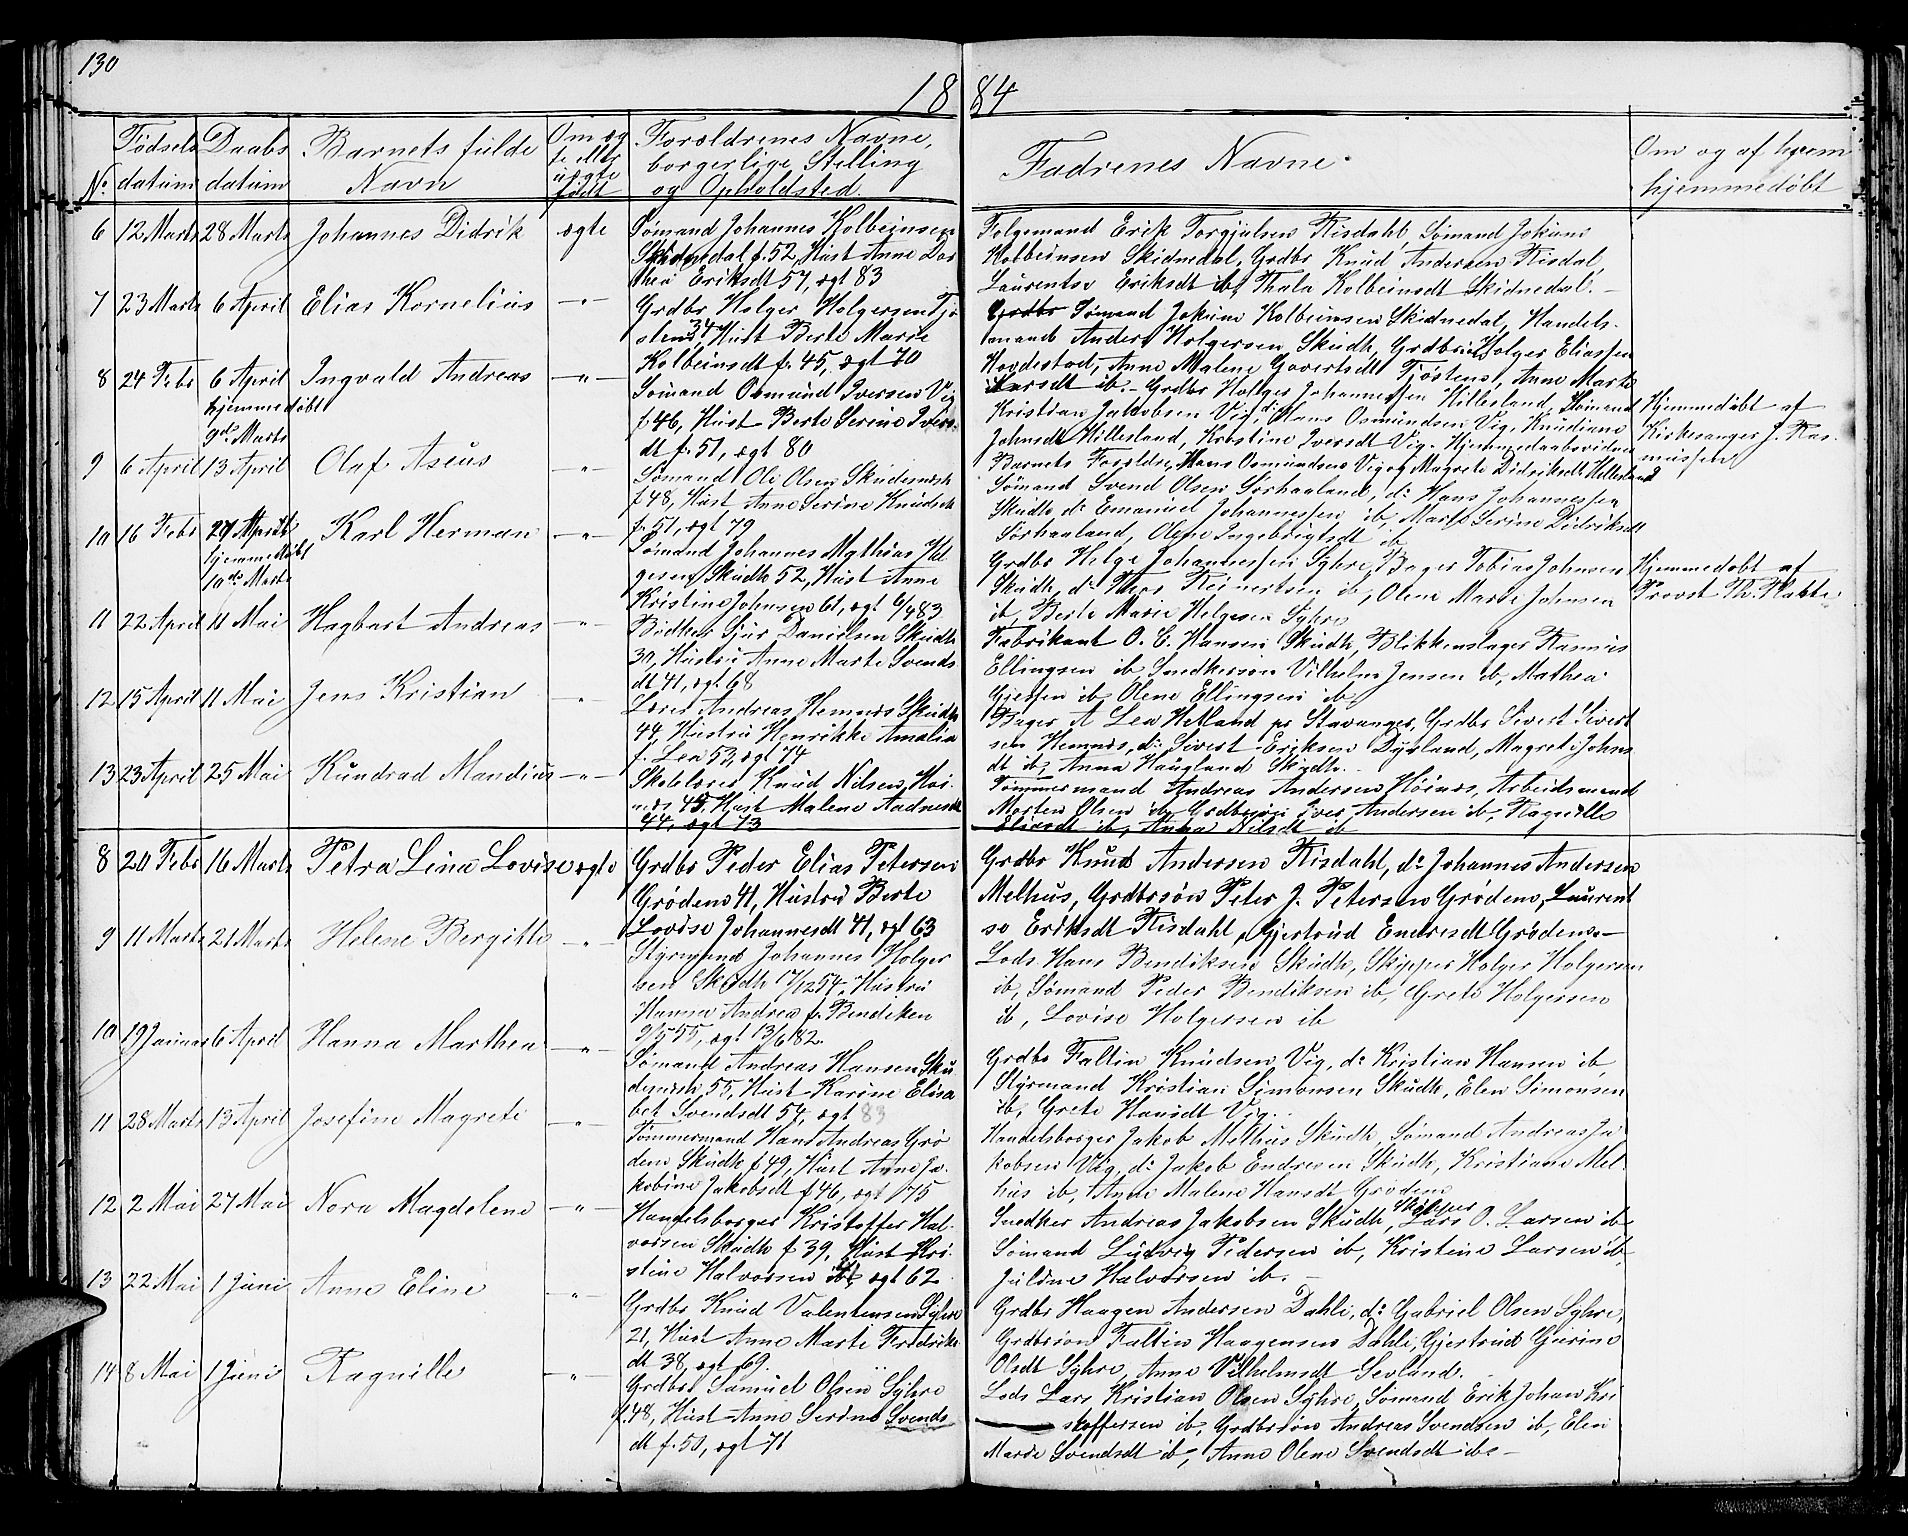 130
1884
No.
Fødsels datum
Daabs datum
Barnets fulde Navn
Om ægte eller uægte født
Forældrenes Navne, borgerlige Stilling og Opholdsted.
Fadrenes Navne.
Om og af hvem hjemmedøbt
6 12 Marts 28 Marts Johannes Didrik ægte
Sømand Johannes Kolbeinsen
Skidnedal f. 52, Hust Anne Dor
thea Eriksdt 57, ægt 83
Følgemand Erik Torgjulsen Risdahl, Sømand Jokum
Kolbeinsen Skidnedal, Grdbr Knud Andersen Risdal,
Laurentse Eriksdt ib, Thala Kolbeinsdt Skidnedal. –
7 23 Marts 6 April Elias Kornelius – " –
Grdbr Holger Holgersen Tjø
sten 34, Hust Berte Marie
Kolbeinsdt f. 45, ægt 70
Grdbr Sømand Jokum Kolbeinsen Skidnedal, Handels-
mand Anders Holgersen Skudh, Grdbrsøn Holger Eliassen
Hovdestad, Anne Malene Govertsdt Tjøsten, Anne Marte
Larsdt ib. –
8 24 Febr 6 April Ingvald Andreas – " –
hjemmedøbt
9de Marts
Sømand Osmund Iversen Vig
f 46, Hust Berte Serine Ivers-
dt f. 51, ægt 80
Grdbr Holger Johannessen Hillesland, Sømand
Kristian Jakobsen Vig, do Hans Osmundsen Vig, Knudiane
Johnsdt Hillesland, Kristine Iversdt Vig. Hjemmedaabsvidner
Barnets Forældre, Hans Osmundsen Vig og Magrete Didriksdt Hillesland
Hjemmedøbt af
Kirkesanger J. Ras-
mussen
9 6 April 13 April Olaf Aseus – " –
Sømand Ole Olsen Skudesnsh
f 48, Hust Anne Serine Knudsdt
f. 51, ægt 79
Sømand Svend Olsen Sørhaaland, do Hans Johannessen
Skudh do Emanuel Johannessen ib, Marte Serine Didriksdt
Sørhaaland, Olene Ingebrigtsdt ib
10 16 Febr 27 April Karl Herman – " –
hjemmedøbt
10de Marts
Sømand Johannes Mathias Hel
gesen Skudh 52, Hust Anne
Kristine Johnsen 61, ægt 6/4 83
Grdbr Helge Johannessen Syhre, Bager Tobias Johnsen
Skudh, do Thor Reinertsen ib, Olene Marie Johnsen
ib, Berte Marie Helgesen Syhre
Hjemmedøbt af
Provst Th. Kl
11 22 April 11 Mai Hagbart Andreas – " –
Bødker Sjur Danielsen Skudh
30, Hustru Anne Marte Svends
dt 41, ægt 68
Fabrikant O. C. Hansen Skudh, Blikkenslager Rasmus
Ellingsen ib, Snedkersøn Vilhelm Jensen ib, Mathea
Gjessen ib Olene Ellingsen ib
12 15 April 11 Mai Jens Kristian – " –
Lærer Andreas Hemnes Skudh
44, Hustru Henrikke Amalia
f. Lea 53, ægt 74
Bager A Lea Hetland pr Stavanger, Grdbr Sivert Sivert
sen Hemnes, do Sivert Eriksen Dyrland, Magrete Johns
dt ib, Anna Haugland Skudh.
13 23 April 25 Mai Kundrad Mandius – " –
Skolelærer Knud Nilsen Høi-
nes 45, Hust Malene Aadnesdt
44, ægt 73
Tømmermand Andreas Andersen Høines, Arbeidsmand
Morten Olsen ib Grdbrsøn Iver Andersen ib, Ragnille
Eliasdt ib, Anna Nilsdt ib
8 20 Febr 16 Marts Petra Lina Lovise ægte
Grdbr Peder Elias Petersen
Grødem 41, Hustru Berte
Lovise Johannesdt 41, ægt 63
Grdbr Knud Andersen Risdahl, do Johannes Andersen
Melhus, Grdbrsøn Peter J. Petersen Grødem, Laurent
se Eriksdt Risdahl, Gjertrud Endresdt Grødem. –
9 11 Marts 21 Marts Helene Bergitte – " –
Styrmand Johannes Holger
sen Skudh 17/12 54, Hustru
Hanna Andrea f. Bendiksen
9/5 55, ægt 13/6 82.
Lods Hans Bendiksen Skudh, Skipper Holger Holgersen
ib, Sømand Peder Bendiksen ib, Grete Holgersen
ib, Lovise Holgersen ib
10 19 Januar 6 April Hanna Marthea – " –
Sømand Andreas Hansen Sku
desnsh 55, Hust Karine Elisa
bet Svendsdt 54, ægt 83
Grdbr Faltin Knudsen Vig, do Kristian Hansen ib,
Styrmand Kristian Simonsen Skudh, Elen Simonsen
ib, Grete Hansdt Vig. –
11 28 Marts 13 April Josefine Magrete – " –
Tømmermand Hans Andreas Grø
dem Skudh f 49, Hust Anne Ja-
kobine Jakobsdt f 46, ægt 75
Handelsborger Jakob Melhus Skudh, Sømand Andreas Ja
kobsen Vig, do Jakob Endresen Skudh, Kristiane Mel-
hus ib, Anne Malene Hansdt Grødem
12 2 Mai 27 Mai Nora Magdelene – " –
Handelsborger Kristoffer Hal-
vorsen Skudh f 39, Hust Kri-
stine Halvorsen ægt 62
Snedker Andreas Jakobsen Skudh, Skipper Lars O. Larsen ib
Sømand Ludvig Pedersen ib, Kristine Larsen ib,
Juldine Halvorsen ib. –
13 22 Mai 1 Juni Anne Eline – " –
Grdbr Knud Valentinsen Syhre
21, Hust Anne Marte Fredriks
dt 38, ægt 69.
Grdbr Haagen Andersen Dahle, do Gabriel Olsen Syhre,
Grdbrsøn Faltin Haagensen Dahle, Gjertrud Gurine
Olsdt Syhre, Anne Vilhelmsdt Sevland.
14 8 Mai 1 Juni Ragnille – " –
Grdbr Samuel Olsen Syhre
f. 48, Hust Anne Serine Svends
dt f. 50, ægt 71
Lods Lars Kristian Olsen Syhre, Sømand Erik Johan Kri
stoffersen ib, Grdbrsøn Andreas Svendsen ib, Elen
Marie Svendsdt ib, Anne Olene Svendsdt ib –